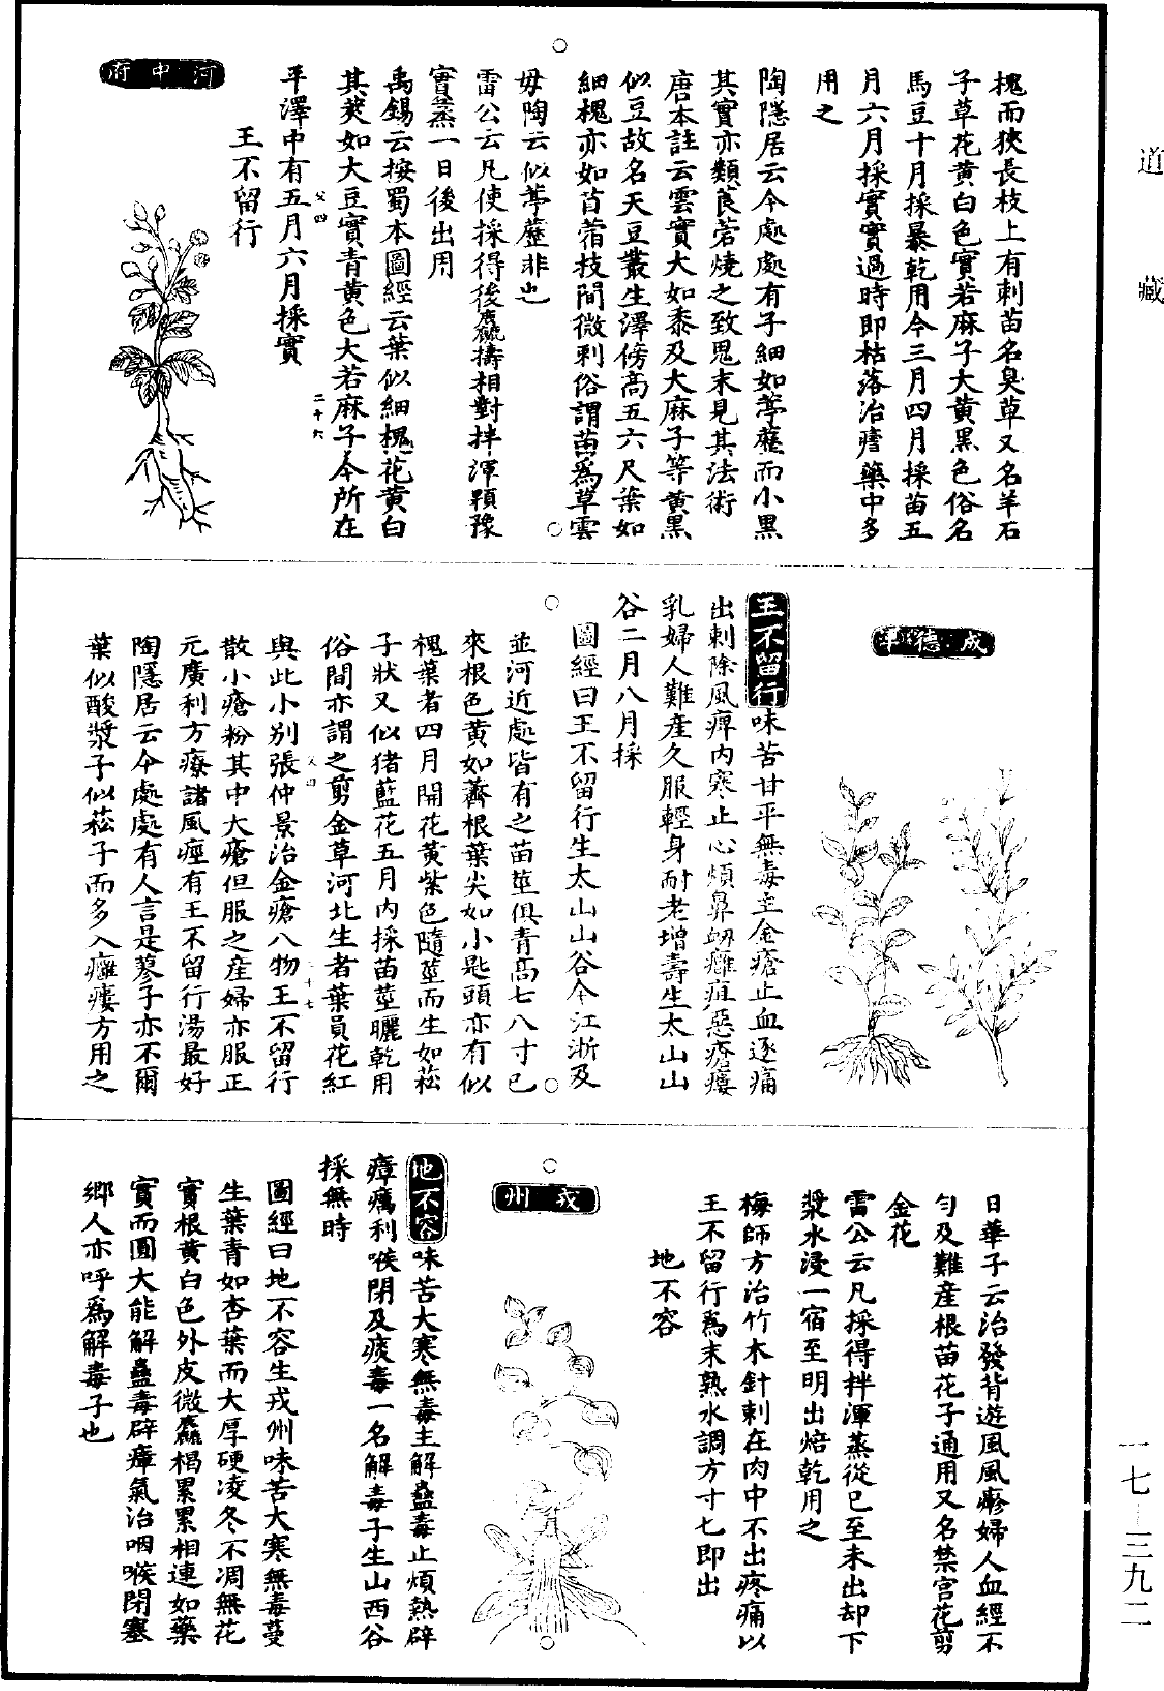 道藏
槐而狹長枝上有刺苗名臭草又名羊石
子草花黄白色實若麻子大黄黑色俗名
馬豆十月採暴乾用今三月四月採苗五
月六月採實實過時即枯落治瘧藥中多
用之
陶隱居云今處處有子細如葶藶而小黑
其實亦類莨菪燒之致鬼未見其法術
唐本註云雲實大如黍及大麻子等黄黑
似豆故名天豆叢生澤傍高五六尺葉如
細槐亦如苜蓿枝間微刺俗謂苗爲草雲
母陶云似葶藶非也
雷公云凡使採得後麄擣相對拌渾顆豫
實蒸一日後出用
禹錫云按蜀本圖經云葉似細槐花黄白
其莢如大豆實青黄色大若麻子今所在
平澤中有五月六月採實
二十六
王不留行
河中府
成德軍
王不留行味苦甘平無毒主金瘡止血逐痛
出刺除風痺內寒止心煩鼻衂癰疽惡瘡瘻
乳婦人難產久服輕身耐老增壽生太山山
谷二月八月採
圖經曰王不留行生太山山谷今江浙及
並河近處皆有之苗莖俱青高七八寸已
來根色黄如薺根葉尖如小匙頭亦有似
槐葉者四月開花黄紫色隨莖而生如菘
子狀又似猪藍花五月內採苗莖曬乾用
俗間亦謂之剪金草河北生者葉員花紅
與此小別張仲景治金瘡八物王不留行
散小瘡粉其中大瘡但服之產婦亦服正
元廣利方療諸風痙有王不留行湯最好
陶隱居云今處處有人言是蓼子亦不爾
葉似酸漿子似菘子而多入癰瘻方用之
日華子云治發背遊風風瘮婦人血經不
勻及難產根苗花子通用又名禁宮花剪
金花
雷公云凡採得拌渾蒸從巳至未出却下
漿水浸一宿至明出焙乾用之
梅師方治竹木針刺在肉中不出疼痛以
王不留行爲末熟水調方寸匕即出
地不容
戎州
地不容味苦大寒無毒主解蠱毒止煩熱辟
瘴癘利喉閉及痰毒一名解毒子生山西谷
採無時
圖經曰地不容生戎州味苦大寒無毒蔓
生葉青如杏葉而大厚硬凌冬不凋無花
實根黄白色外皮微麄㮎累累相連如藥
實而圓大能解蠱毒辟瘴氣治咽喉閉塞
鄉人亦呼爲解毒子也
一七—三九二